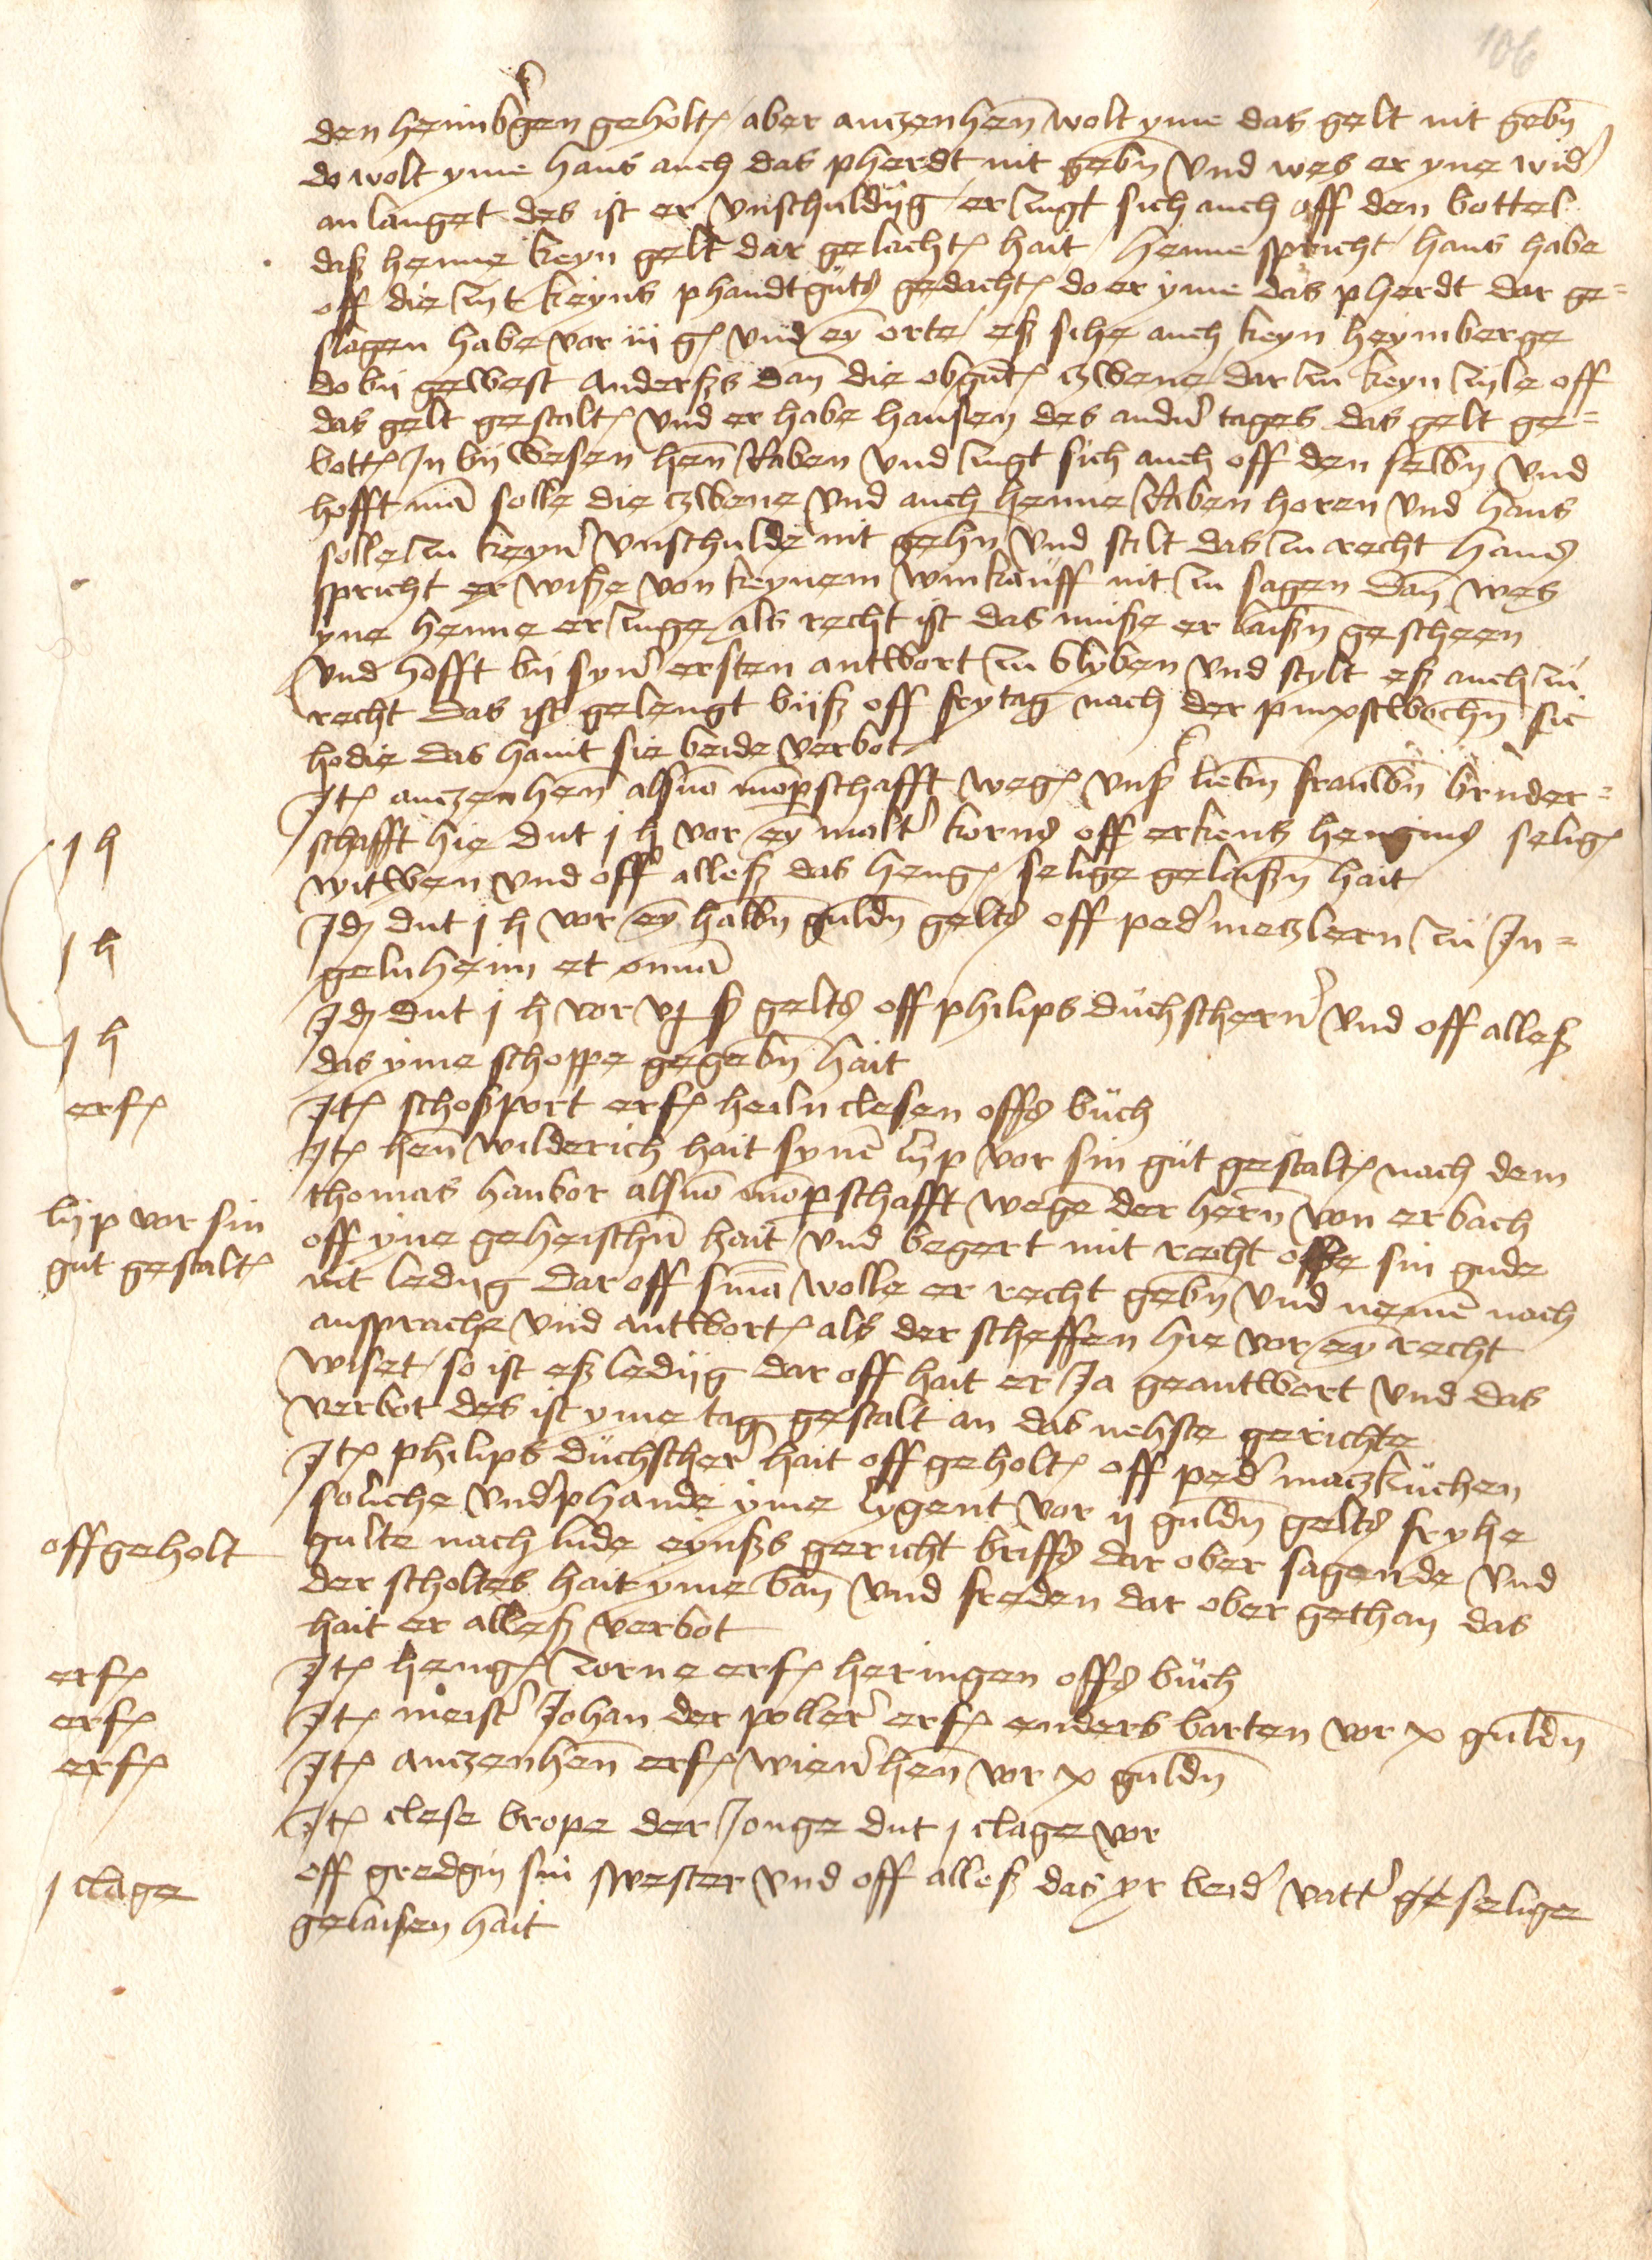 106
den heimbʼgen geholt / aber anczenhen̅ wolt yme das gelt nit gebn̅
do wolt yme hans auch das pherdt nit gebn̅ vnd wes er yne widʼ
an langet des ist er vnschuldig / er zugt sich auch off den bottel
daß henne keyn gelt dar gelacht hait / henne spricht / hans habe
off die zijt keyns phandtguts gedacht do er yme das pherdt dar ge=
slagen habe vor iij g und ey̅ orte / eß sihe auch keyn heymberge
do bij gewest anderßs dan̅ die obgn̅t zwene / dar zu keyn zijle off
das gelt gestalt vnd er habe hansen des andʼn tages das gelt ge=
bott jn bij wesen hen̅ Raben vnd zugt sich auch off den selbn̅ vnd
hofft ma̅ solle die zwene vnd auch henne Raben horen vnd hans
solle zu keynʼ vnschulde nit gehn̅ vnd stilt das zu recht hans
spricht er wiße von keynem winkauff nit zu sagen dan̅ wes
yne henne erzuge als recht ist das muße er laißn̅ gescheen
vnd hofft bij synʼ ersten antwort zu blyben vnd stylt eß auch zu
recht das ist gelengt bijß off frytag nach der pinxstwochn̅ sic
hodie das hant sie beide verbot
Jt anczenhen̅ als vo̅ mo̅perschafft weg vnßʼ liebn̅ frauwn̅ bruder=
schafft hie dut j h vor ey̅ maltʼ korns off erkens hengins selig
j h
witwen vnd off alleß das heng selige gelaißn̅ hait
Jd dut j h vor ey̅ halbn̅ guldn̅ gelts off pedʼ metzlern zu Jn=
j h
gelnheim et om̅a
Jd dut j h vor vj ß gelts off philips duchschererʼ vnd off alleß
j h
das yme schoppe gegebn̅ hait
Jt schoßport erf heiln clesen offs buch
erf
Jt hen̅ wilderich hait syne̅ lijp vor sin gut gestalt nach dem
thomas hanbor als vo̅ mo̅perschafft wege̅ der hern̅ von erbach
lijp vor sin
gut gestalt
off yne geheischn̅ hait vnd begert mit recht obe sin gude
nit ledig dar off sin̅a wolle er recht gebn̅ vnd neme̅ nach
ansprache vnd antwort als der scheffen hie vor ey̅ recht
wiset / so ist eß ledijg dar off hait er Ja geantwort vnd das
verbot des ist yme tag gestalt an das nehste gerichte
Jt philips duchschererʼ hait off geholt off pedʼ maczkuchen
soliche vndʼphande yme lygent vor ij guldn̅ gelts fryhe
gulte nach lude eynßs gericht briffs dar ober sagende vnd
offgeholt
der scholtes hait yme ban̅ vnd freden dar ober gethan das
hait er alleß verbot
Jt heng zorne erf heringen offs buch
erf
Jt meistʼ Johan der pollerʼ erf enders barten vor x guldn̅
erf
Jt anczenhen̅ erf winerʼhen̅ vor x guldn̅
erf
Jt clese brope der Jonge dut j clage vor
off gredgin sin swester vnd off alleß das yr beidʼ vattʼ ge selige
j clage
gelaisen hait